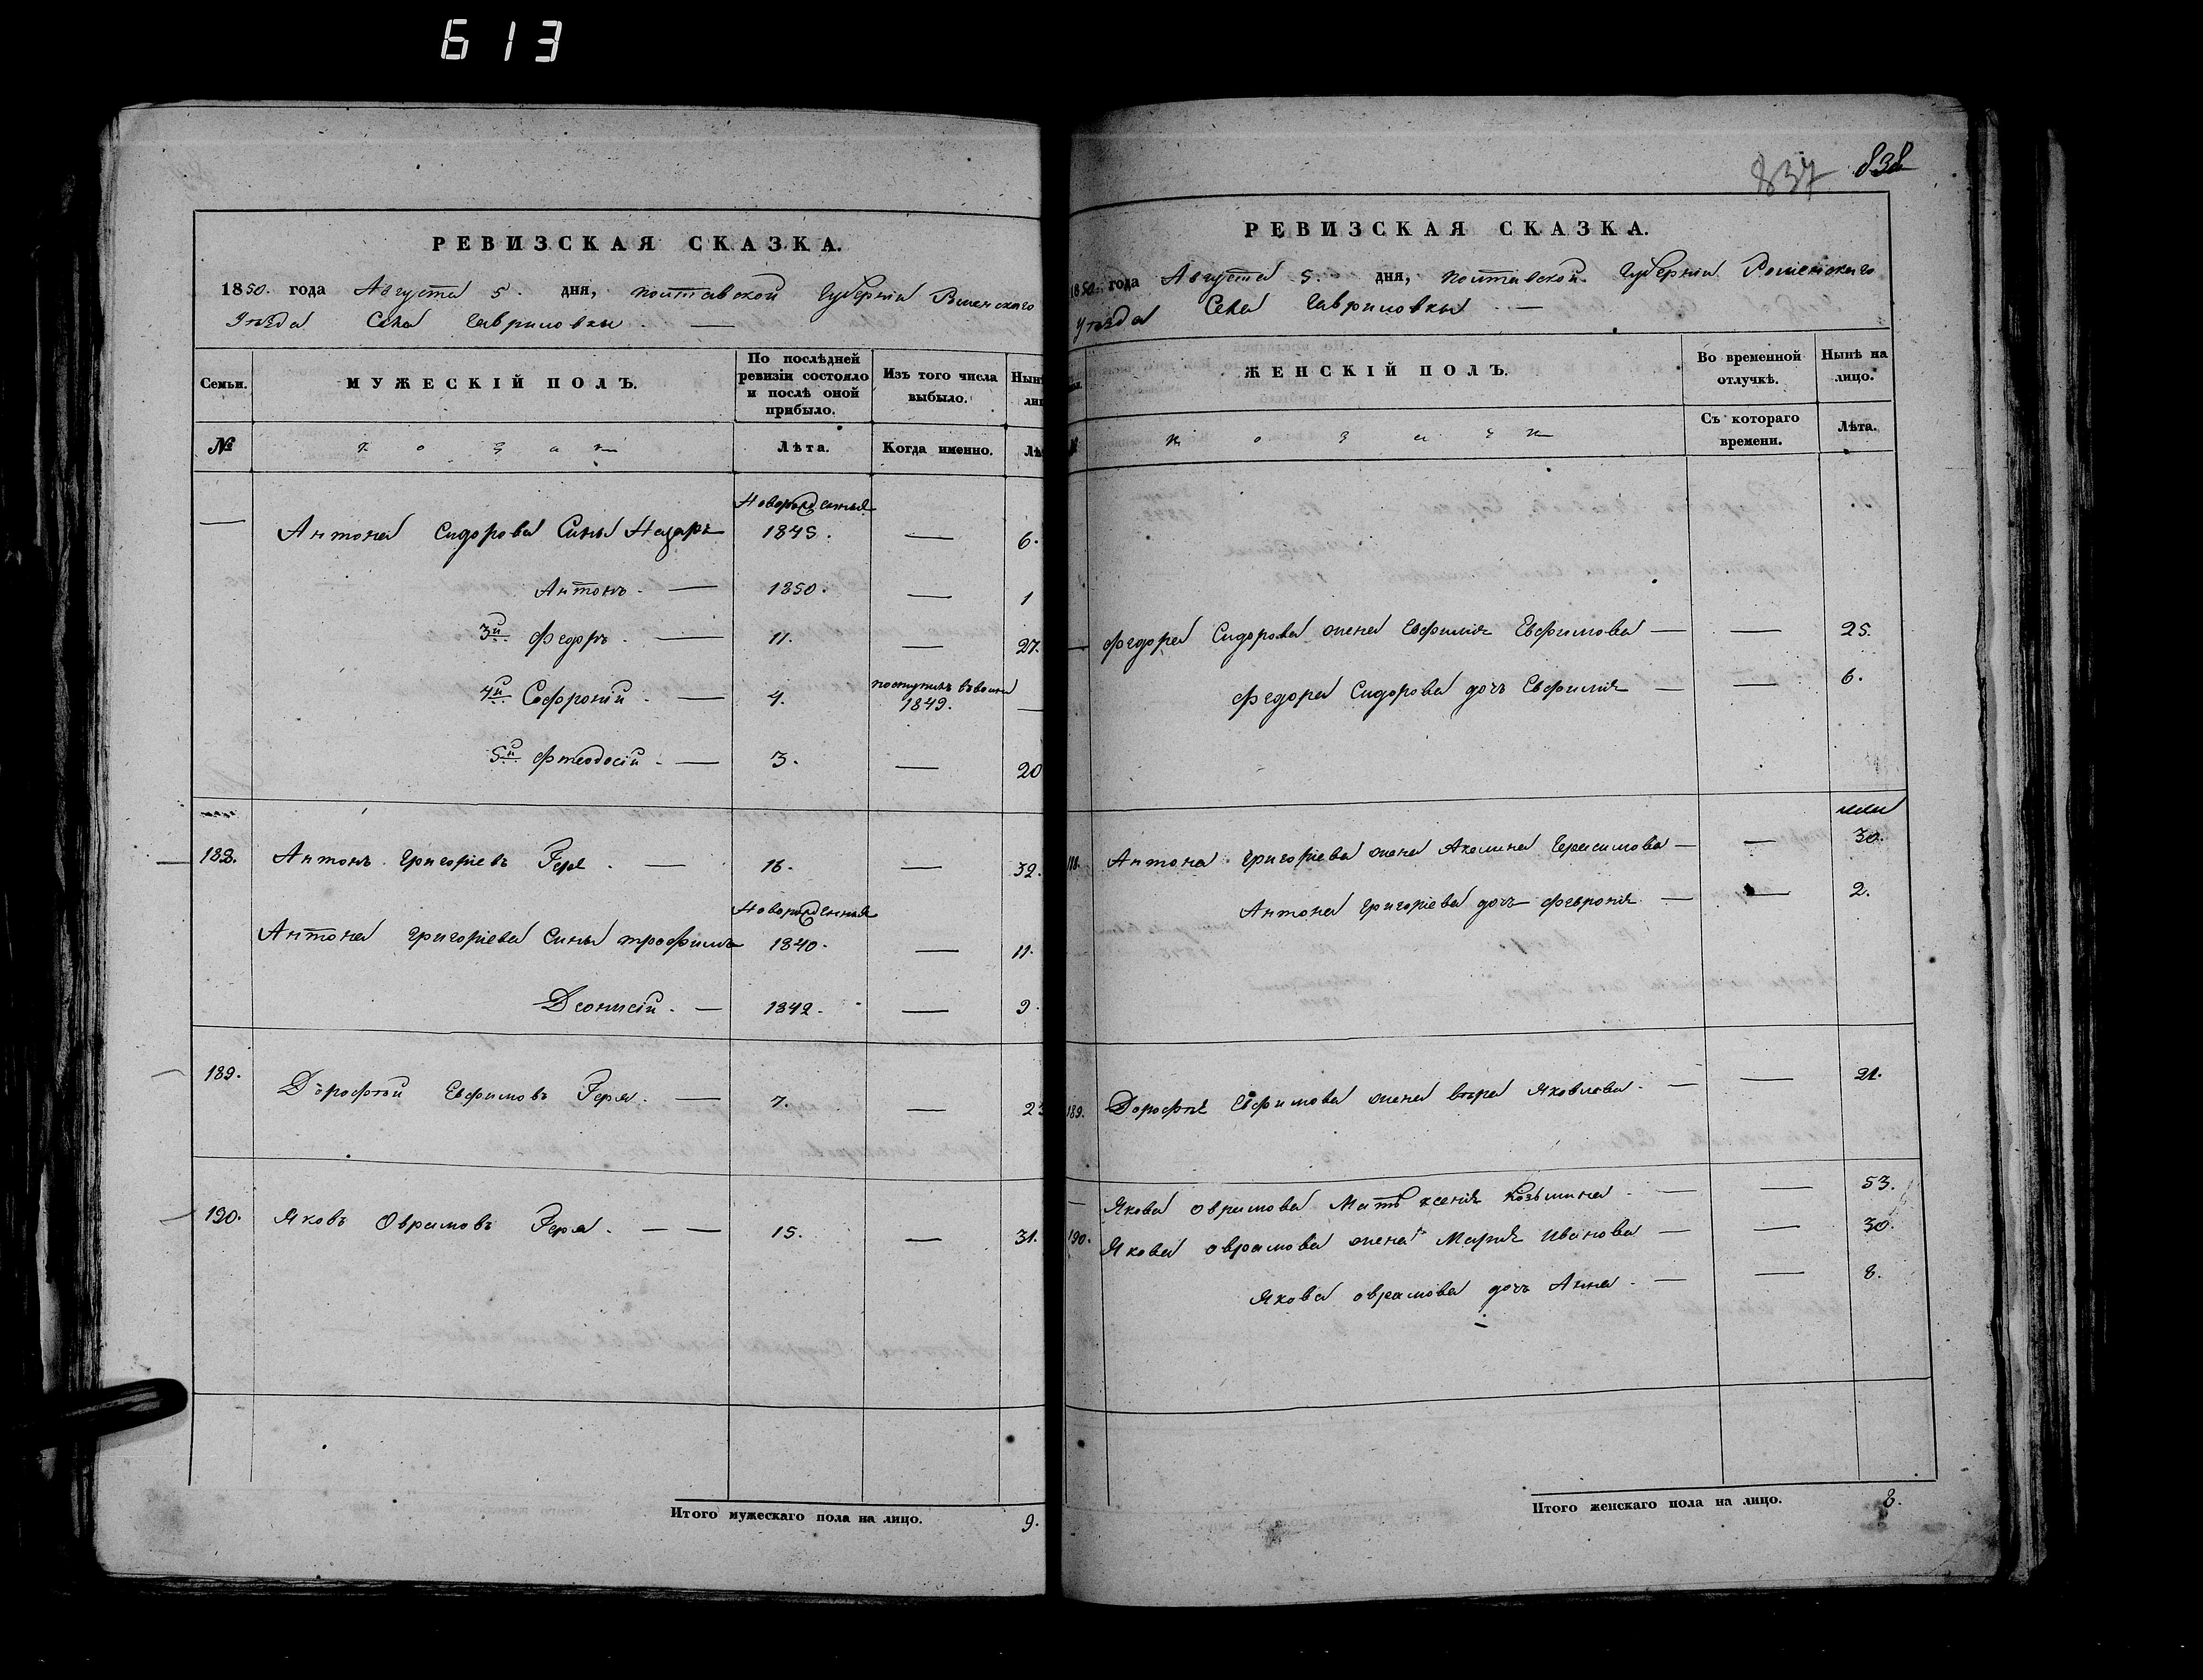 613
РЕВИЗСКАЯ СКАЗКА.
1850. года Августа 5. дня, Полтавской Губерніи Роменскаго
Уѣзда Села Гавриловки. —
Семьи.
МУЖЕСКІЙ ПОЛЪ.
По послѣдней ревизіи состояло и послѣ оной прибыло.
Изъ того числа выбыло.
№
Козаки
Лѣта.
Когда именно.
Новорожденныя
— Антона Сидорова Сынъ Назаръ 1845. — 6.
Антонъ. — 1850. — 1
3й Федоръ. — 11. — 27.
4й Софроній. — 4. поступилъ въ 1849. —
5й Фтеодосій. — 3. — 20
188. Антонъ Григоріевъ Геря. — 16. — 32.
Новорожденныя
Антона Григоріева Сынъ Трофимъ 1840. — 11.
Деонисій. — 1842. — 9.
189. Дорофѣй Евфимовъ Геря. — 7. — 23
190. Яковъ Оврамовъ Геря. — — 15. — 31.
Итого мужескаго пола на лицо. 9.
837 838
РЕВИЗСКАЯ СКАЗКА.
1850. года Августа 5. дня, Полтавской Губерніи Роменскаго
Уѣзда Села Гавриловки —
ЖЕНСКІЙ ПОЛЪ.
Во временной отлучкѣ.
Нынѣ на лицо.
Съ котораго времени.
Лѣта.
— Федора Сидорова жена Евфимія Евфимова — — 25.
Федора Сидорова дочь Евфимія — — 6.
188. Антона Григоріева жена Акилина Герасимова — — 30.
Антона Григоріева дочь Февронія — — 2.
189. Дорофѣя Евфимова жена Вѣра Яковлева. — — 21.
— Якова Оврамова Мать Ксенія Козьмина. — — 53.
190. Якова Оврамова жена Марія Иванова — — 30.
Якова Оврамова дочь Анна. — — 8.
Итого женскаго пола на лицо. 8.